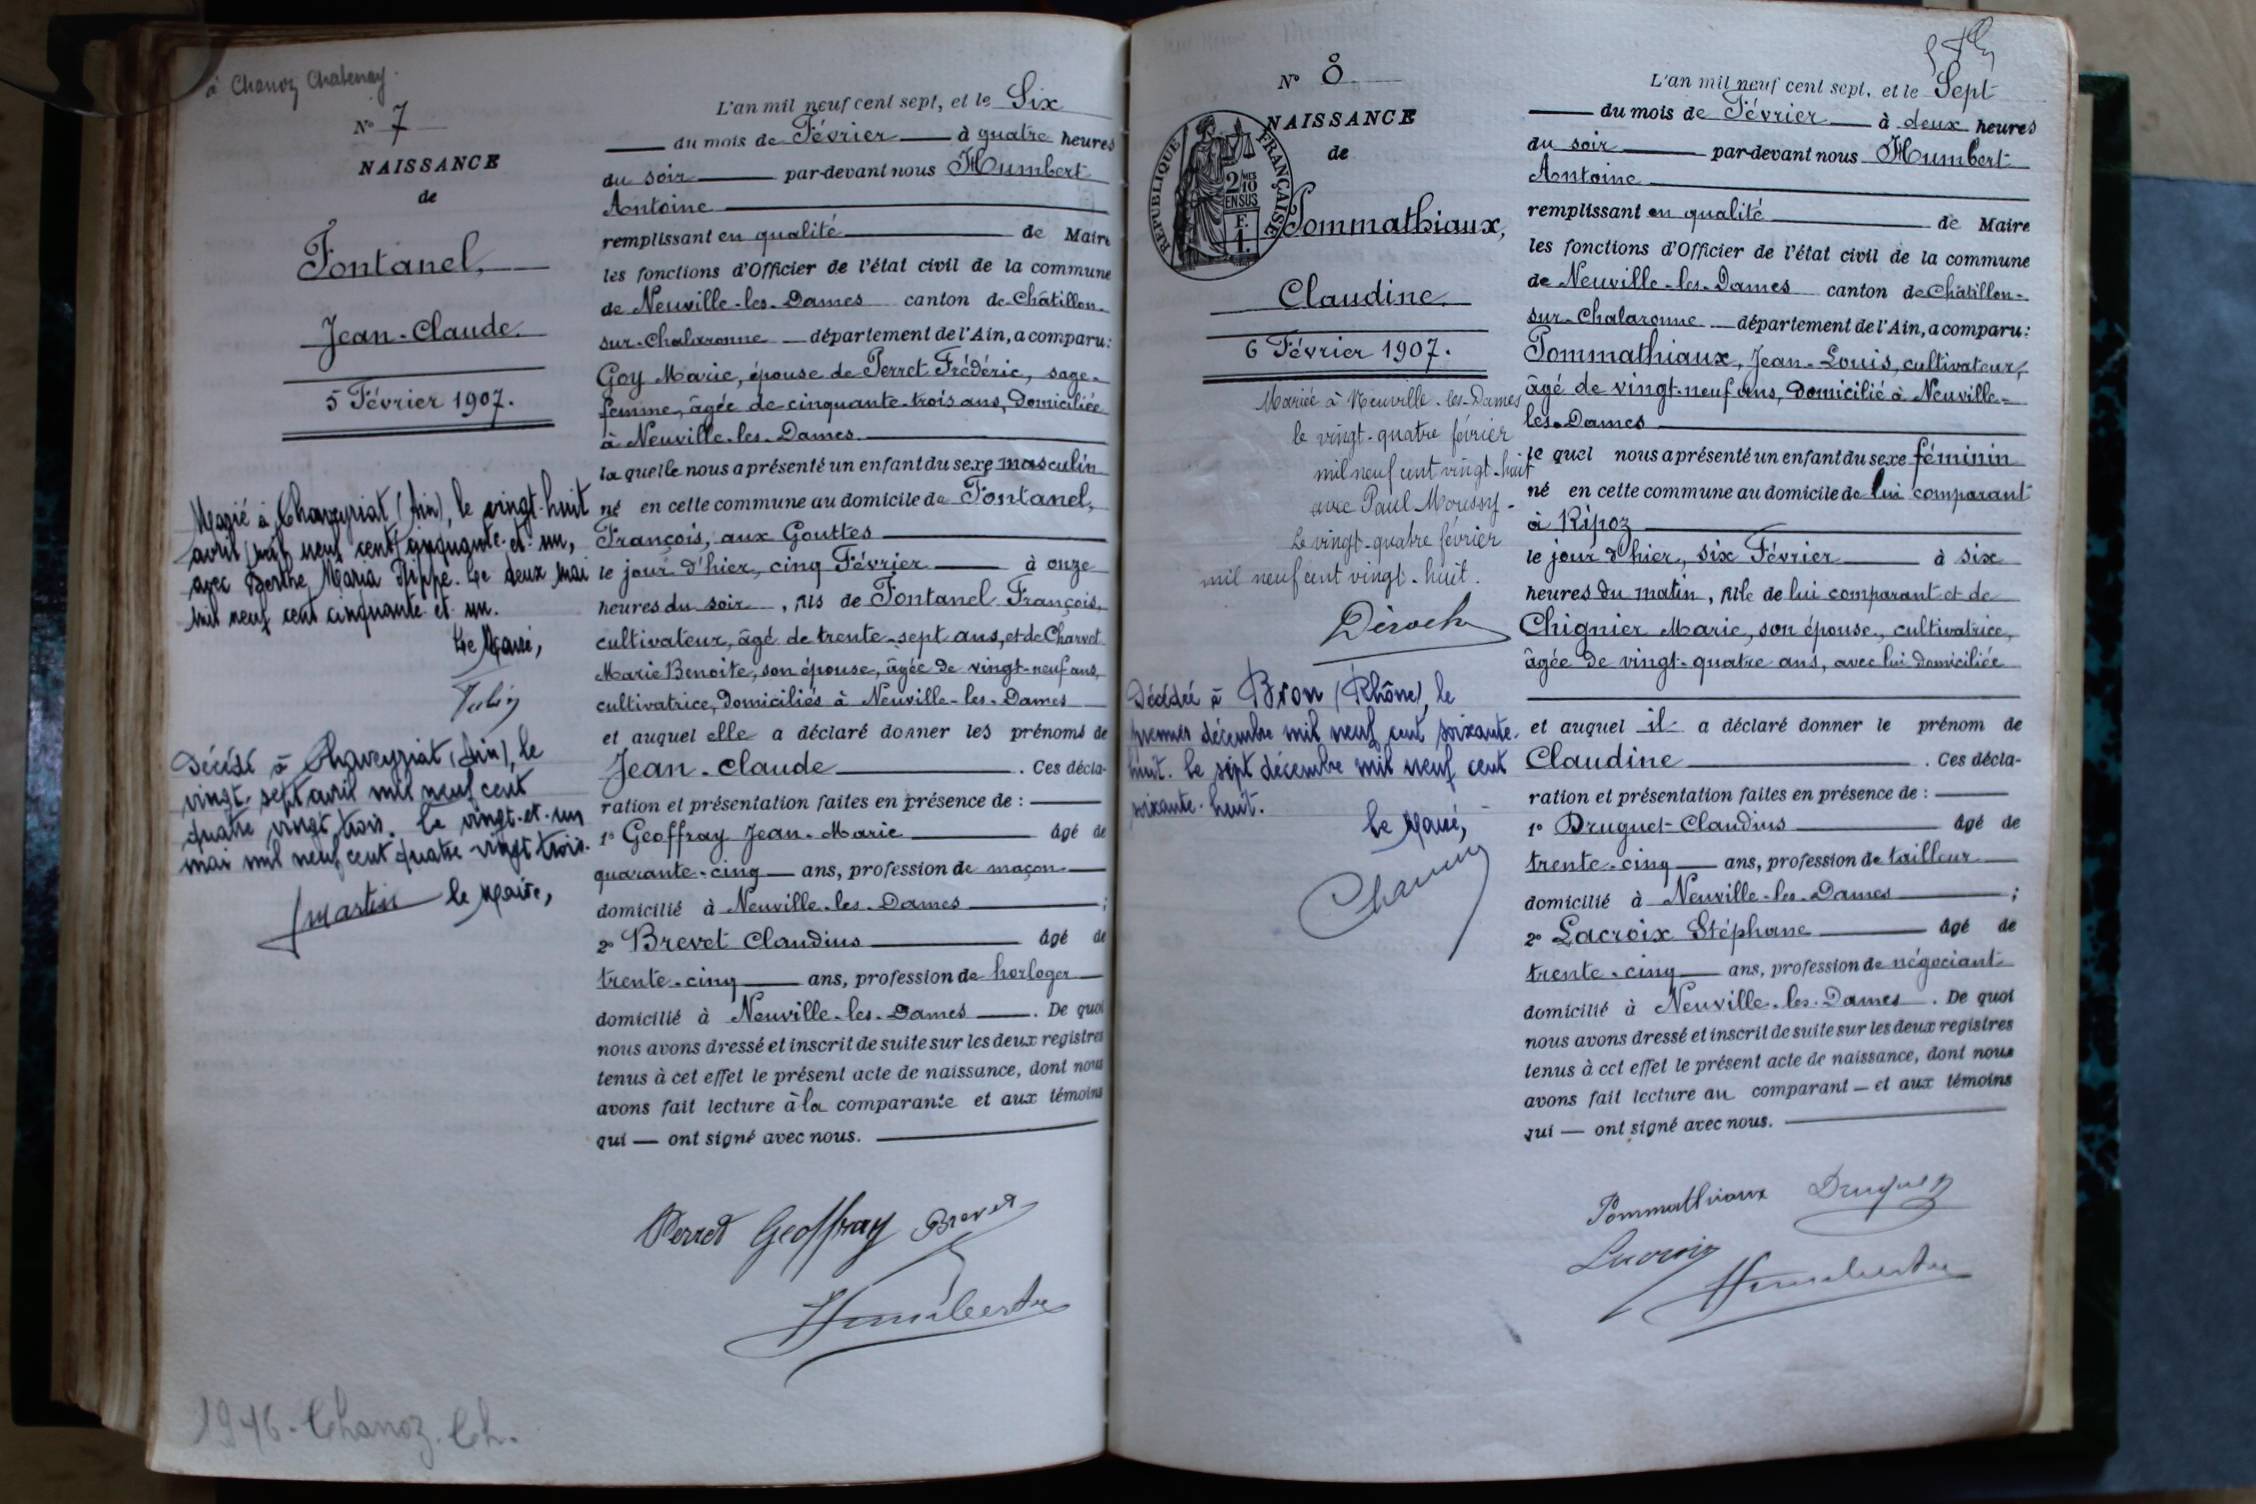 à Chanoz Chatenay.
N° 7
NAISSANCE
de
Fontanel,
Jean-Claude.
5 Février 1907.
Marié à Chaveyriat (Ain), le vingt-huit
avril mil neuf cent cinquante-et-un,
avec Berthe Maria Flippe. Le deux mai
mil neuf cent cinquante-et-un.
Le Maire,
Décédé à Chaveyriat (Ain), le
vingt-sept avril mil neuf cent
quatre vingt trois. Le vingt-et-un
mai mil neuf cent quatre vingt trois.
Martin le Maire,
1946-Chanoz.Ch.
L'an mil neuf cent sept, et le Six
du mois de Février à quatre heures
du soir par-devant nous Humbert
Antoine
remplissant en qualité de Maire
les fonctions d'Officier de l'état civil de la commune
de Neuville-les-Dames canton de Châtillon-
sur-Chalaronne département de l'Ain, a comparu:
Goy Marie, épouse de Perret Frédéric, sage-
femme, âgée de cinquante-trois ans, domiciliée
à Neuville-les-Dames
la quelle nous a présenté un enfant du sexe masculin
né en cette commune au domicile de Fontanel,
François, aux Gouttes
le jour d'hier, cinq Février à onze
heures du soir, fils de Fontanel François,
cultivateur, âgé de trente-sept ans, et de Charvet
Marie Benoite, son épouse, âgée de vingt-neuf ans,
cultivatrice, domiciliés à Neuville-les-Dames
et auquel elle a déclaré donner les prénoms de
Jean-Claude. Ces décla-
ration et présentation faites en présence de :
1° Geoffray Jean-Marie âgé de
quarante-cinq ans, profession de maçon
domicilié à Neuville-les-Dames ;
2° Brevet Claudius âgé de
trente-cinq ans, profession de horloger
domicilié à Neuville-les-Dames. De quoi
nous avons dressé et inscrit de suite sur les deux registres
tenus à cet effet le présent acte de naissance, dont nous
avons fait lecture à la comparante et aux témoins
qui — ont signé avec nous.
Perret Geoffray Brevet
Humbert
N° 8
NAISSANCE
de
REPUBLIQUE FRANÇAISE
2/10 MES
EN SUS
F.
1.
Pommathiaux,
Claudine
6 Février 1907.
Mariée à Neuville-les-Dames
le vingt-quatre février
mil neuf cent vingt-huit
avec Paul Moussy-
Le vingt-quatre février
mil neuf cent vingt-huit.
Décédée à Bron (Rhône), le
premier décembre mil neuf cent soixante-
huit. Le sept décembre mil neuf cent
soixante-huit.
Le Maire,
L'an mil neuf cent sept, et le Sept
du mois de Février à deux heures
du soir par-devant nous Humbert
Antoine
remplissant en qualité de Maire
les fonctions d'Officier de l'état civil de la commune
de Neuville-les-Dames canton de Châtillon-
sur-Chalaronne département de l'Ain, a comparu:
Pommathiaux, Jean-Louis, cultivateur,
âgé de vingt-neuf ans, domicilié à Neuville-
les-Dames
le quel nous a présenté un enfant du sexe féminin
né en cette commune au domicile de lui comparant
à Ripoz
le jour d'hier, six Février à six
heures du matin, fille de lui comparant et de
Chignier Marie, son épouse, cultivatrice,
âgée de vingt-quatre ans, avec lui domiciliée
et auquel il a déclaré donner le prénom de
Claudine. Ces décla-
ration et présentation faites en présence de :
1° Druguet Claudius âgé de
trente-cinq ans, profession de tailleur
domicilié à Neuville-les-Dames ;
2° Lacroix Stéphane âgé de
trente-cinq ans, profession de négociant
domicilié à Neuville-les-Dames. De quoi
nous avons dressé et inscrit de suite sur les deux registres
tenus à cet effet le présent acte de naissance, dont nous
avons fait lecture au comparant — et aux témoins
qui — ont signé avec nous.
Pommathiaux Druguet
Lacroix Humbert